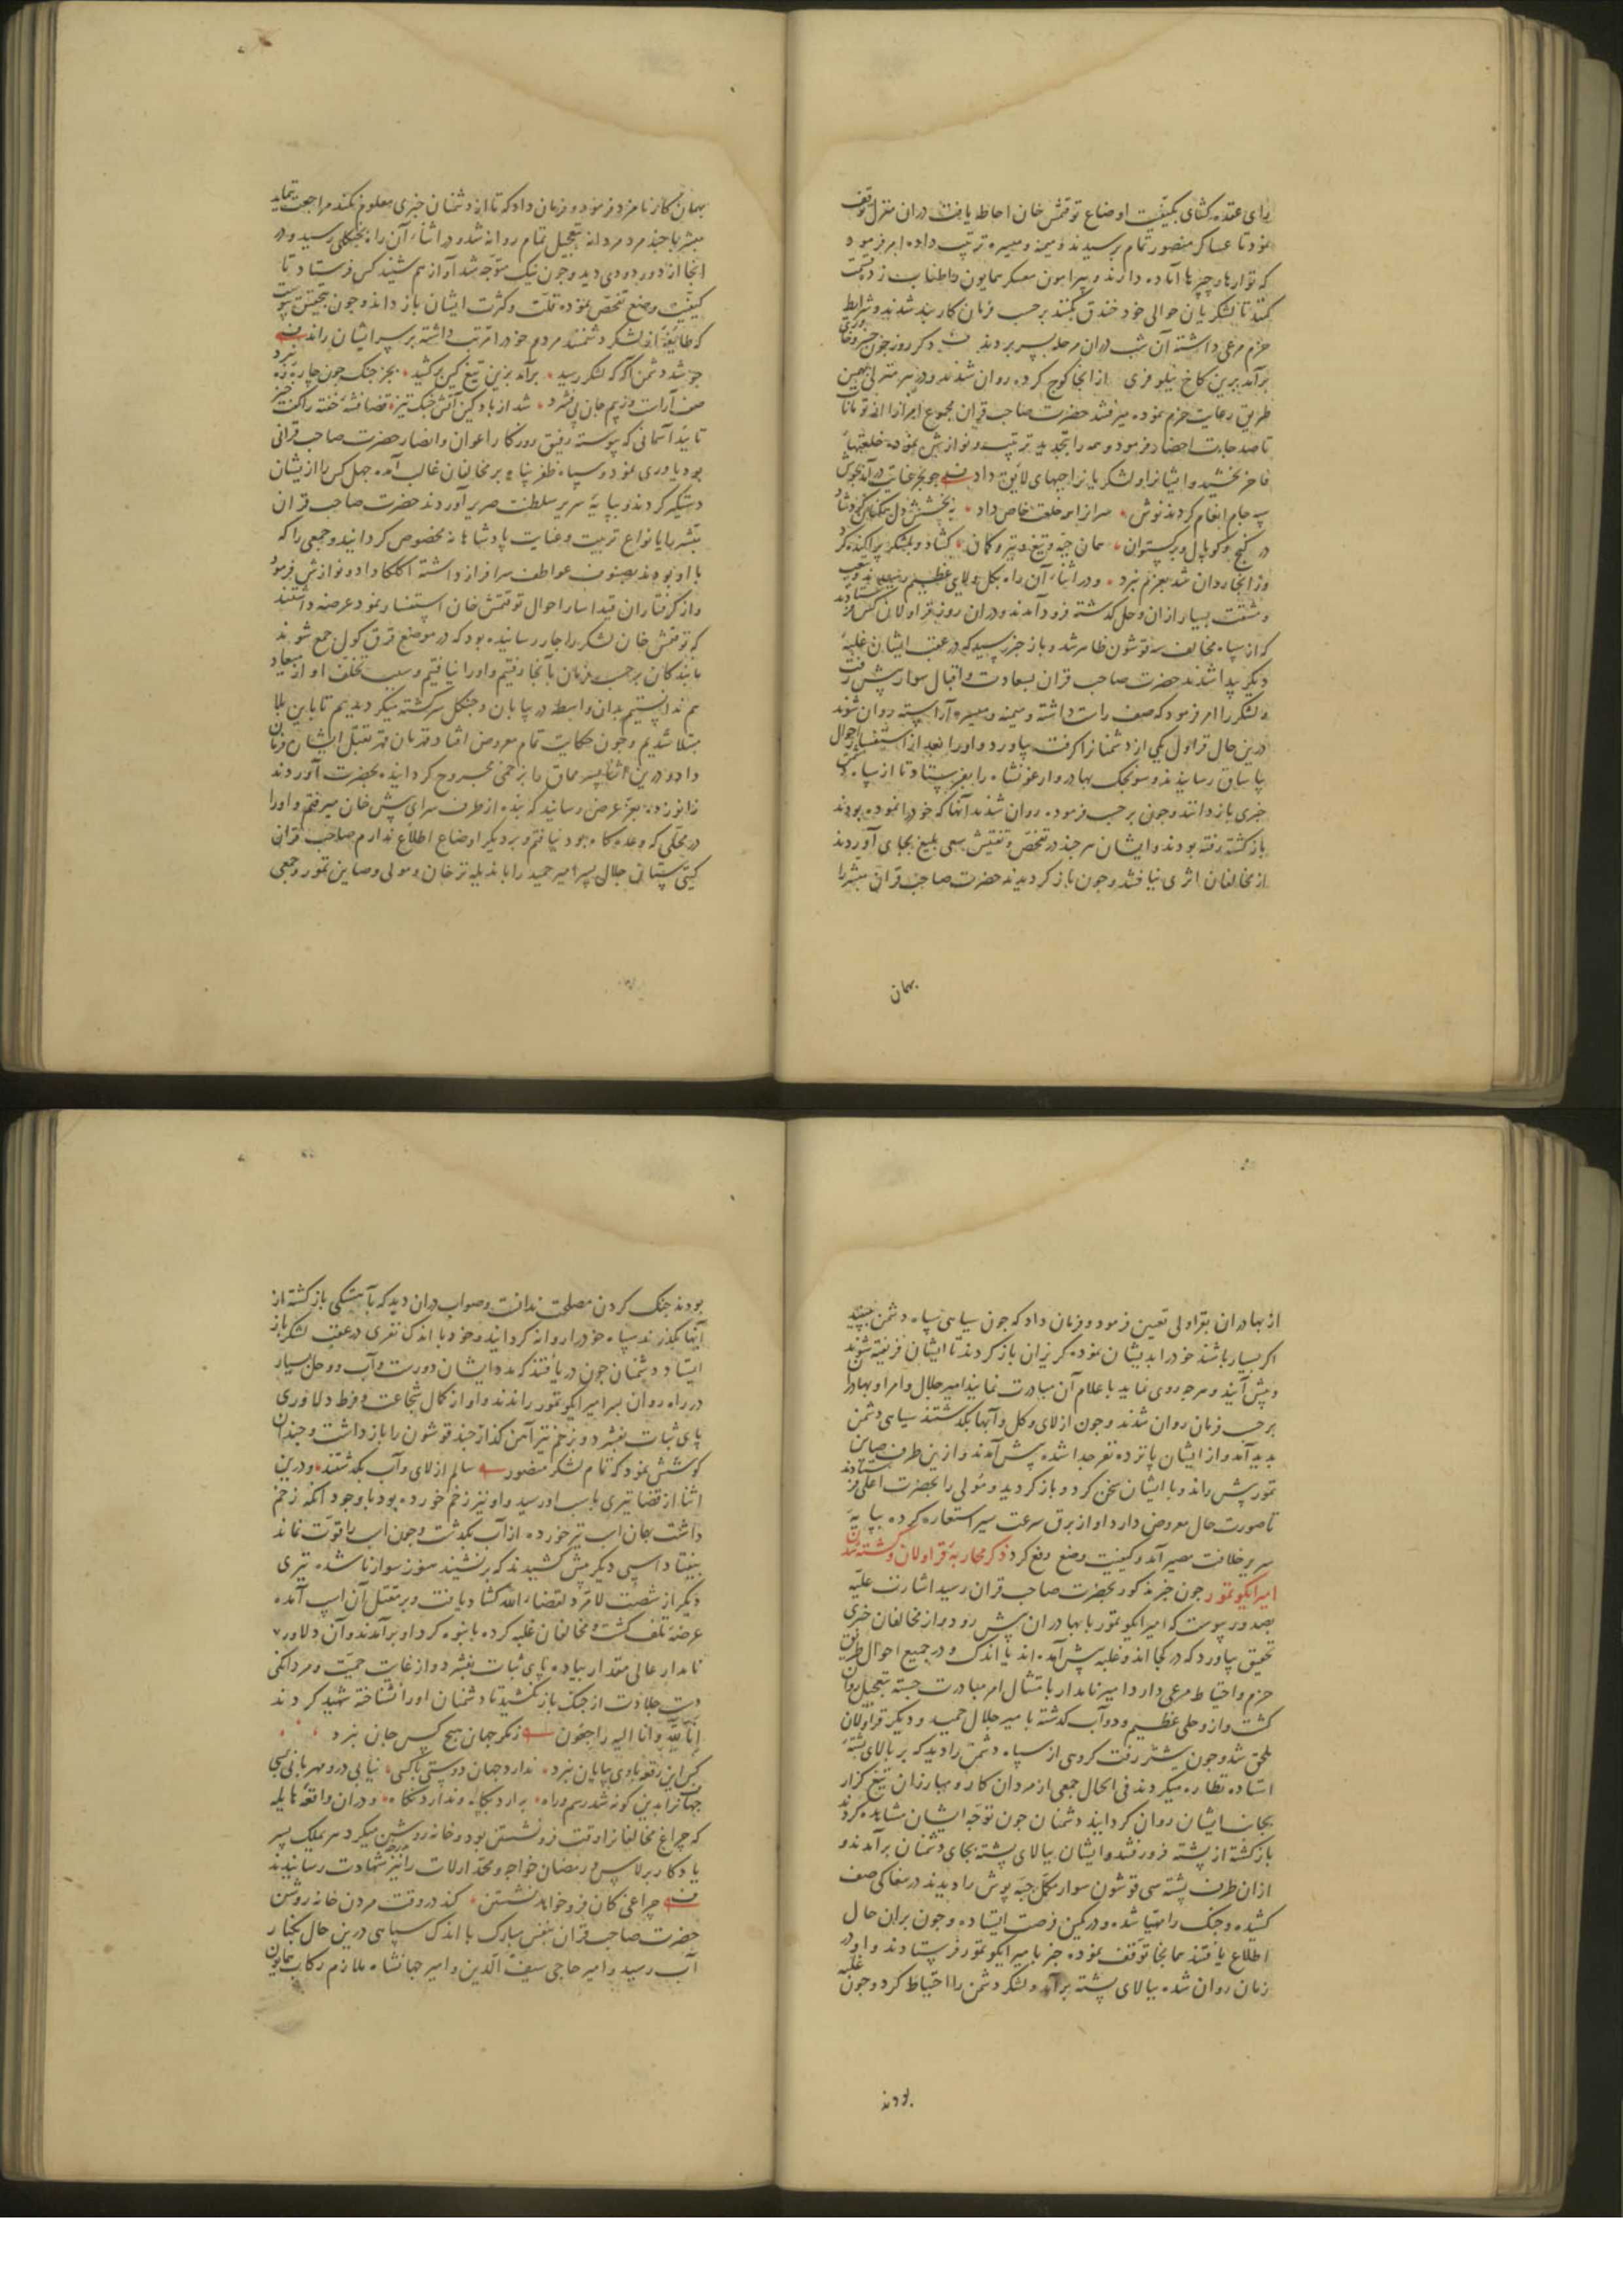 رای عقده کشای بکیفیت اوضاع توقتمش خان احاطه یافت دران منزل توقف
نمود تا عساکر منصور تمام برسیدند و میمنه و میسره ترتیب داده امر فرمود
که تواره و چپرها آماده دارند و پیرامون معسکر همایون
کنند تا لشکریان حوالی خود خندق بکنند برحسب فرمان کاربند شدند و شرایط
حزم مرعی داشته آن شب دران مرحله بسر بردند دکر روز جون خسرو خاوری
برآمد برین کاخ نیلوفری از انجا کوچ کرده روان شدند و در هر منزلی بهمین
طریق رعایت حزم نموده میرفتند حضرت صاحب قران مجموع امرا را از تومانات
تا صدجات احضار فرمود و همه را بتجدید تربیت و نوازش نموده خلعتهای
فاخر بخشید و ایشانرا و لشکریانرا جهای لایق داد جو بحر عنایت درآمد بجوش
همه جام انعام کردند نوش سرانرا همه خلعت خاص داد به بخشش دل همکنان کرد شاد
در کنج و کوپال و برکستوان همان جبه و تیغ و تیر و کمان کشاد و بلشکر پراکنده کرد
وز انجا روان شد بعزم نبرد و در اثناء آن راه بکل و لای عظیم رسیدند و بتعب
و مشقت بسیار ازان وحل کذشته فرود آمدند و دران روز قراولان کس فرستادند
که از سپاه مخالف سه قوشون ظاهر شد و باز خبر رسید که در عقب ایشان غلبه
دیکر پیدا شدند حضرت صاحب قران بسعادت و اقبال سوار پیش رفت
و لشکر را امر فرمود که صف راست داشته و میمنه و میسره آراسته روان شوند
درین حال قراول یکی از دشمنانرا کرفته بیاورد و او را بعد از استفسار احوال
بیاساق رسانیدند و سونجک بهادر و ارغونشاه را بفرستاد تا از سپاه دشمن
خبری بازدانند و جون برحسب فرموده روان شدند آنها که خود را نموده بودند
بازکشته رفته بودند و ایشان هر جند در تفحص و تفتیش سعی بلیغ بجای آوردند
از مخالفان اثری نیافتند و جون باز کردیدند حضرت صاحب قران مبشر را
بهمان
بهمان کار نامزد فرمود و فرمان داد که تا از دشمنان خبری معلوم نکند مراجعت ننماید
مبشر با جند مرد مردانه بتعجیل تمام روانه شد و در اثناء آن راه بجنکلی رسید و در
انجا از دور دودی دید و جون نیک متوجه شد آواز هم شنید کس فرستاد تا
کیفیت وضع تفحص نموده قلت و کثرت ایشان بازداند و جون بتحقیق پیوست
که طایفه از لشکر دشمنند مردم خود را مرتب داشته بر سر ایشان راند
جو شد دشمن آکه که لشکر رسید برآمد بزین تیغ کین برکشید بجز جنک جون چاره نبرد
صف آراست وز بیم جان پی فشرد شد از باد کین آتش جنک تیز قضا فتنه خفته را کفت خیز
تایید آسمانی که پیوسته رفیق روزکار اعوان و انصار حضرت صاحب قرانی
بود یاوری نمود و سپاه ظفرپناه بر مخالفان غالب آمده جهل کس را از یشان
دستکیر کردند و بپایه سریر سلطنت مصیر آوردند حضرت صاحب قران
مبشر را بانواع تربیت و عنایت پادشاهانه مخصوص کردانید و جمعی را که
با او بودند بصنوف عواطف سرافراز داشته اکلکا داد و نوازش فرمود
و از کرفتاران قیدآسار احوال توقتمش خان استفسار نمود عرضه داشتند
که توقتمش خان لشکر را جار رسانیده بود که در موضع قرق کول جمع شوند
ما بندکان برحسب فرمان بآنجا رفتیم و او را نیافتیم و سبب تخلف او از میعاد
هم ندانستیم بدان واسطه در بیابان و جنکل سرکشته میکردیدیم تا باین بلا
مبتلا شدیم و جون حکایت تمام معروض افتاد قهرمان قهر بقتل ایشان فرمان
داد و درین اثنا پسر مماق را بزخمی مجروح کردانیده بحضرت آوردند
زانو زده بعز عرض رسانید که بنده از طرف سرای پیش خان میرفتم و او را
در محلی که وعده کاه بود نیافتم و بر دیکر اوضاع اطلاع ندارم صاحب قران
کیتی ستانی جلال پسر امیر حمید را با ندیله ترخان و مولی و صاین تمور و جمعی
از بهادران بقراولی تعیین فرمود و فرمان داد که جون سیاهی سپاه دشمن ببینید
اکر بسیار باشند خود را بدیشان نموده کریزان باز کردند تا ایشان فریفته شوند
و پیش آیند و هرچه روی نماید باعلام آن مبادرت نمایند امیر جلال و امرا و بهادران
برحسب فرمان روان شدند و جون از لای و کل و آبها بکذشتند سیاهی دشمن
پدید آمد و از ایشان پانزده نفر جدا شده پیش آمدند و ازین طرف صاین
تمور پیش راند و با ایشان سخن کرد و باز کردید و مولی را بحضرت اعلی فرستادند
تا صورت حال معروض دارد و او از برق سرعت سیر استعاره کرده بپایه
سریر خلافت مصیر آمد و کیفیت وضع رفع کرد ذکر محاربه قراولان و کشته شدن
امیر ایکو تمور جون خبر مذکور بحضرت صاحب قران رسید اشارت علیه
بصدور پیوست که امیر ایکو تمور با بهادران پیش رود و از مخالفان خبری
تحقیق بیاورد که در کجا اند و غلبه پیش آمده اند یا اندک و در جمیع احوال طریق
حزم و احتیاط مرعی دارد امیر نامدار بامتثال امر مبادرت جسته بتعجیل روان
کشت و از وحلی عظیم و دو آب کذشته با میر جلال حمید و دیکر قراولان
ملحق شد و جون پیشتر رفت کروهی از سپاه دشمن را دید که بر بالای پشته
استاده نظاره میکردند فی الحال جمعی از مردان کار و مبارزان تیغ کزار
بجانب ایشان روان کردانید دشمنان جون توجه ایشان مشاهده کردند
بازکشته از پشته فرو رفتند و ایشان ببالای پشته بجای دشمنان برآمدند و
ازان طرف پشته سی قوشون سوار مکمل جبه پوش را دیدند در مغاکی صف
کشیده و جنک را مهیا شده و در کمین فرصت ایستاده و جون بران حال
اطلاع یافتند همانجا توقف نموده خبر با میر ایکو تمور فرستادند و او در
زمان روان شده ببالای پشته برآمد و لشکر دشمن را احتیاط کرد و جون غلبه
بودند
بودند جنک کردن مصلحت ندانست و صواب دران دید که بآهستکی بازکشته از
آبها بکذرند سپاه خود را روانه کردانید و خود با اندک نفری در عقب لشکر باز
ایستاد دشمنان جون دریافتند که مدد ایشان دورست و آب و وحل بسیار
در راه روان بر سر امیر ایکو تمور راندند و او از کمال شجاعت و فرط دلاوری
پای ثبات بفشرد و بزخم تیر آهن کذار جند قوشون را بازداشت و جندان
کوشش نمود که تمام لشکر منصور سالم از لای و آب بکذشتند و درین
اثنا از قضا تیری باسب او رسید و او نیز زخم خورده بود با وجود آنکه زخم
داشت بهمان اسب تیر خورده از آب بکذشت و جون اسب را قوت نماند
بیفتاد اسپی دیکر پیش کشیدند که برنشیند هنوز سوار ناشده تیری
دیکر از شصت لا مرد لقضاء الله کشاد یافت و بر مقتل آن اسپ آمده
عرضه تلف کشت و مخالفان غلبه کرده بانبوه کرد او برآمدند و آن دلاور
نامدار عالی مقدار پیاده پای ثبات بفشرد و از غایت حمیت و مردانکی
دست جلادت از جنک باز نکشید تا دشمنان او را نشناخته شهید کردند
انا لله وانا الیه راجعون ز مکر جهان هیچ کس جان نبرد
کس این رقعه با وی بپایان نبرد ندارد جهان دوستی با کسی نیابی درو مهربانی بسی
جهانرا بدین کونه شد رسم و راه برآرد بکاه و ندارد نکاه و دران واقعه هایله
که چراغ مخالفانرا وقت فرو نشستن بود و خانه روشن میکرد هر ملک پسر
یادکار برلاس و رمضان خواجه و محمد ارلات را نیز بدرجه شهادت رسانیدند
چراغی کان فرو خواهد نشستن کند در وقت مردن خانه روشن
حضرت صاحب قران بنفس مبارک با اندک سپاهی درین حال بکنار
آب رسید و امیر حاجی سیف الدین و امیر جهانشاه ملازم رکاب همایون